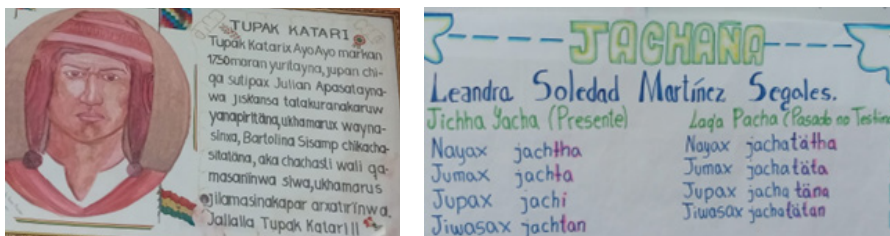 TUPAK KATARI
Tupak Katarix AyoAyo markan
1750 maran yuritayna, jupan chi-
qa sutipax Julian Apasatayna-
wa jiskansa tatakuranakaruw
yanapiritäna, ukhamarux wayna-
sinxa, Bartolina Sisamp chikacha-
sitatäna, aka chachasti wali qa-
masaninwa siwa, ukhamarus
jilamasinakapar arxatirïnwa.
Jallalla Tupak Katari!!!
JACHAÑA
Leandra Soledad Martínez Segales.
Jichha Yacha (Presente)
Nayax jachtha
Jumax jachta
Jupax jachi
Jiwasax jachtan
Laqa Pacha (Pasado no Testim
Nayax jachatätha
Jumax jachatäta
Jupax jachatäna
Jiwasax jachatätan